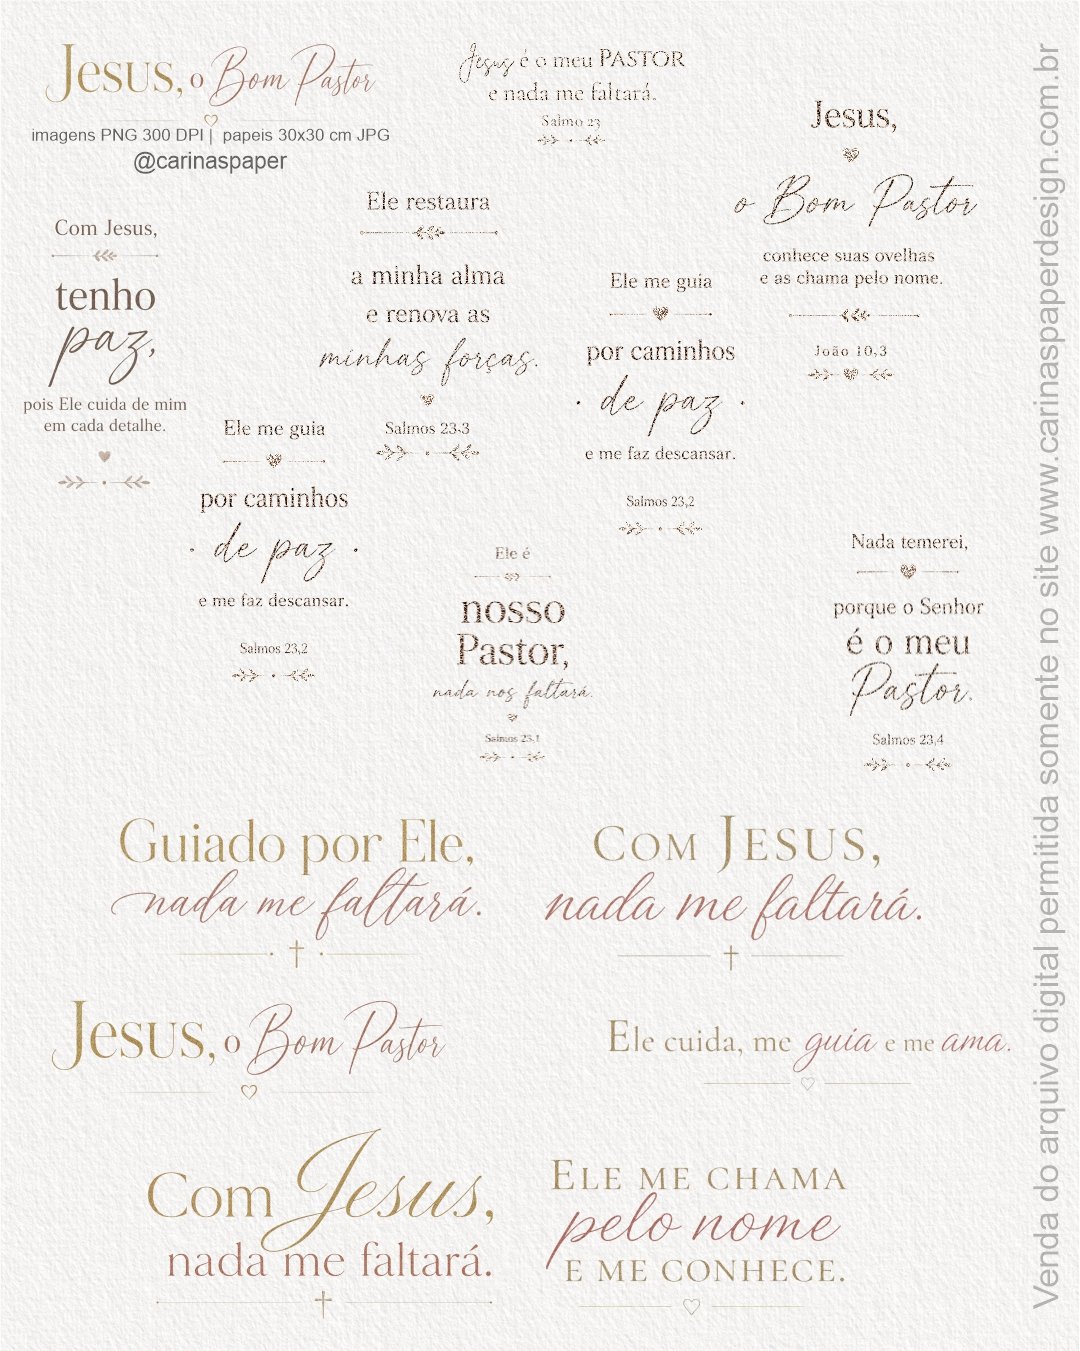 Jesus, o Bom Pastor
imagens PNG 300 DPI | papeis 30x30 cm JPG
@carinaspaper
Jesus é o meu PASTOR
e nada me faltará.
Salmo 23
Jesus,
o Bom Pastor
conhece suas ovelhas
e as chama pelo nome.
João 10,3
Com Jesus,
tenho
paz,
pois Ele cuida de mim
em cada detalhe.
Ele restaura
a minha alma
e renova as
minhas forças.
Salmos 23.3
Ele me guia
por caminhos
de paz
e me faz descansar.
Salmos 23,2
Ele me guia
por caminhos
de paz
e me faz descansar.
Salmos 23,2
Ele é
nosso
Pastor,
nada nos faltará.
Salmos 23,1
Nada temerei,
porque o Senhor
é o meu
Pastor.
Salmos 23,4
Guiado por Ele,
nada me faltará.
COM JESUS,
nada me faltará.
Jesus, o Bom Pastor
Ele cuida, me guia e me ama.
Com Jesus,
nada me faltará.
ELE ME CHAMA
pelo nome
E ME CONHECE.
Venda do arquivo digital permitida somente no site www.carinaspaperdesign.com.br